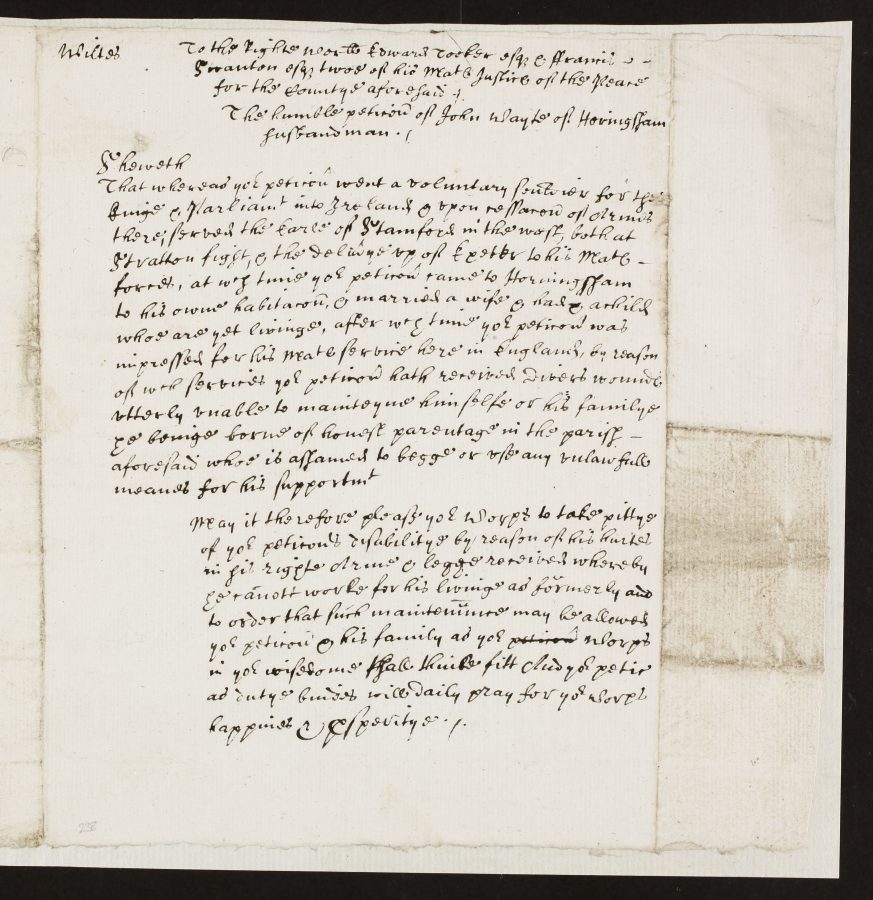 Wiltes
To the Righte worll Edward Tooker esqr & ffrancis
Swanton esqr twoe of his Mats Justics of the Peace
for the Countye aforesaid ./
The humble peticon of John Wayte of Horingsham
husbandman ./
Sheweth
That whereas yor peticōn went a voluntary souldier for the
kinge & Parliamt into Ireland & vpon cessacōn of Armes
there, served the Earle of Stamford in the west both at
Stratton fight, & the delivrye vp of Exeter to his Mats
forces, at wch time yor peticōn came to Horningsham
to his owne habitacōn, & married a wife & had & a child
whoe are yet livinge, after wch time yor peticōn was
impressed for his Mats service here in England, by reason
of wch services yor peticōn hath received divers wounds
vtterly vnable to mainteyne himselfe or his familye
he beinge borne of honest parentage in the parish
aforesaid whoe is ashamed to begge or vse any vnlawfull
meanes for his supportmt
May it therefore please yor Worps to take pittye
of yor peticōns disabilitye by reason of his hurtes
in his righte Arme & legge received whereby
he cānott worke for his livinge as formerly and
to order that such maintenⁿnce may be allowed
yor peticōn & his family as yor peticōn Worps
in yor wisedome shall thinke fitt And yor petic
as dutye bindes will daily pray for yor Worps
happines & psperitye ./
238